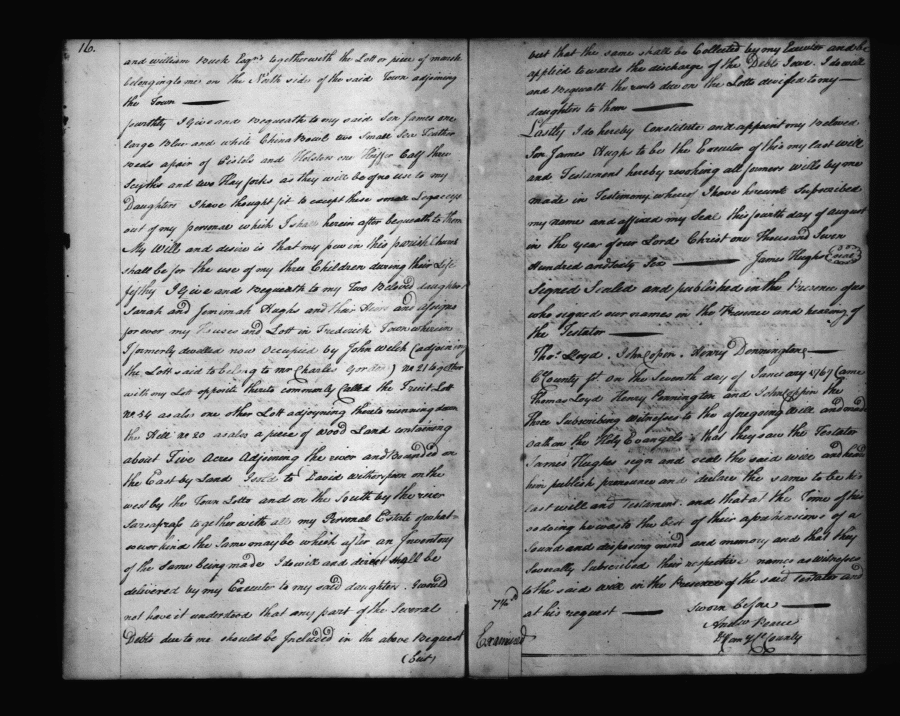 16.
and william Buck Esqrs together with the Lott or piece of marsh
belonging to me on the North side of the said Town adjoining
the Town
fourthly I Give and Bequeath to my said Son James one
Large Blue and white China Bowl two Small Six
reeds a pair of Pistols and Holsters one Heffer Calf three
Scythes and two Hay forks as they will be of no use to my
Daughters I have thought fit to except these small Legaceys
out of my personal which I shall herein after bequeath to them
My Will and desire is that my pew in this parish Church
shall be for the use of my three Children during their Life
fifthly I Give and Bequeath to my Two Beloved daughters
Sarah and Jemimah Hughs and their Heirs and assigns
for ever my Houses and Lott in Frederick Town wherein
I formerly dwelled now Occupied by John Welch (adjoining
the Lott said to belong to mr Charles Gordon) No 21 together
with my Lott opposite thereto commonly Called the Fruit Lott
No. 34 as also one other Lott adjoyning thereto running down
the Hill No 20 as also a piece of wood Land containing
about Five Acres Adjoining the river and Bounded on
the East by Land I sold to David witherspoon on the
west by the Town Lotts and on the South by the river
Sarsafrass together with all my Personal Estate of what
soever kind the Same may be which after an Inventory
of the same being made I do will and direct shall be
delivered by my Executor to my said daughters I would
not have it understood that any part of the Several
Debts due to me should be Included in the above Bequest
(but)
but that the same shall be Collected by my Executor and be
applied towards the discharge of the Debts I owe. I do will
and Bequeath the rents due on the Lotts devised to my
daughters to them
Lastly I do hereby Constitute and appoint my Beloved
Son James Hughs to be the Executor of this my last will
and Testament hereby revoking all formers wills by me
made in Testimony whereof I have hereunto Subscribed
my name and affixed my Seal this fourth day of august
in the year of our Lord Christ one Thousand Seven
Hundred and Sixty Six James Hughs (Seal)
Signed Sealed and published in the Presence of us
who signed our names in the Presence and hearing of
the Testator
Thos. Lloyd. John Coppin. Henry Pennington
Cl County ss. On the Seventh day of January 1767 Came
Thomas Loyd Henry Pennington and John Coppin the
Three Subscribing witnesses to the aforegoing Will and made
Oath on the Holy Evangels that they saw the Testator
James Hughes sign and seal the said will and heard
him publish pronounce and declare the same to be his
last will and Testament. and that at the Time of his
so doing he was to the best of their aprehensions of a
Sound and disposing mind and memory and that they
Severally Subscribed their respective names as Witnesses
to the said will in the Presence of the said Testator and
at his request Sworn before
Andw Pearce
County
Examined